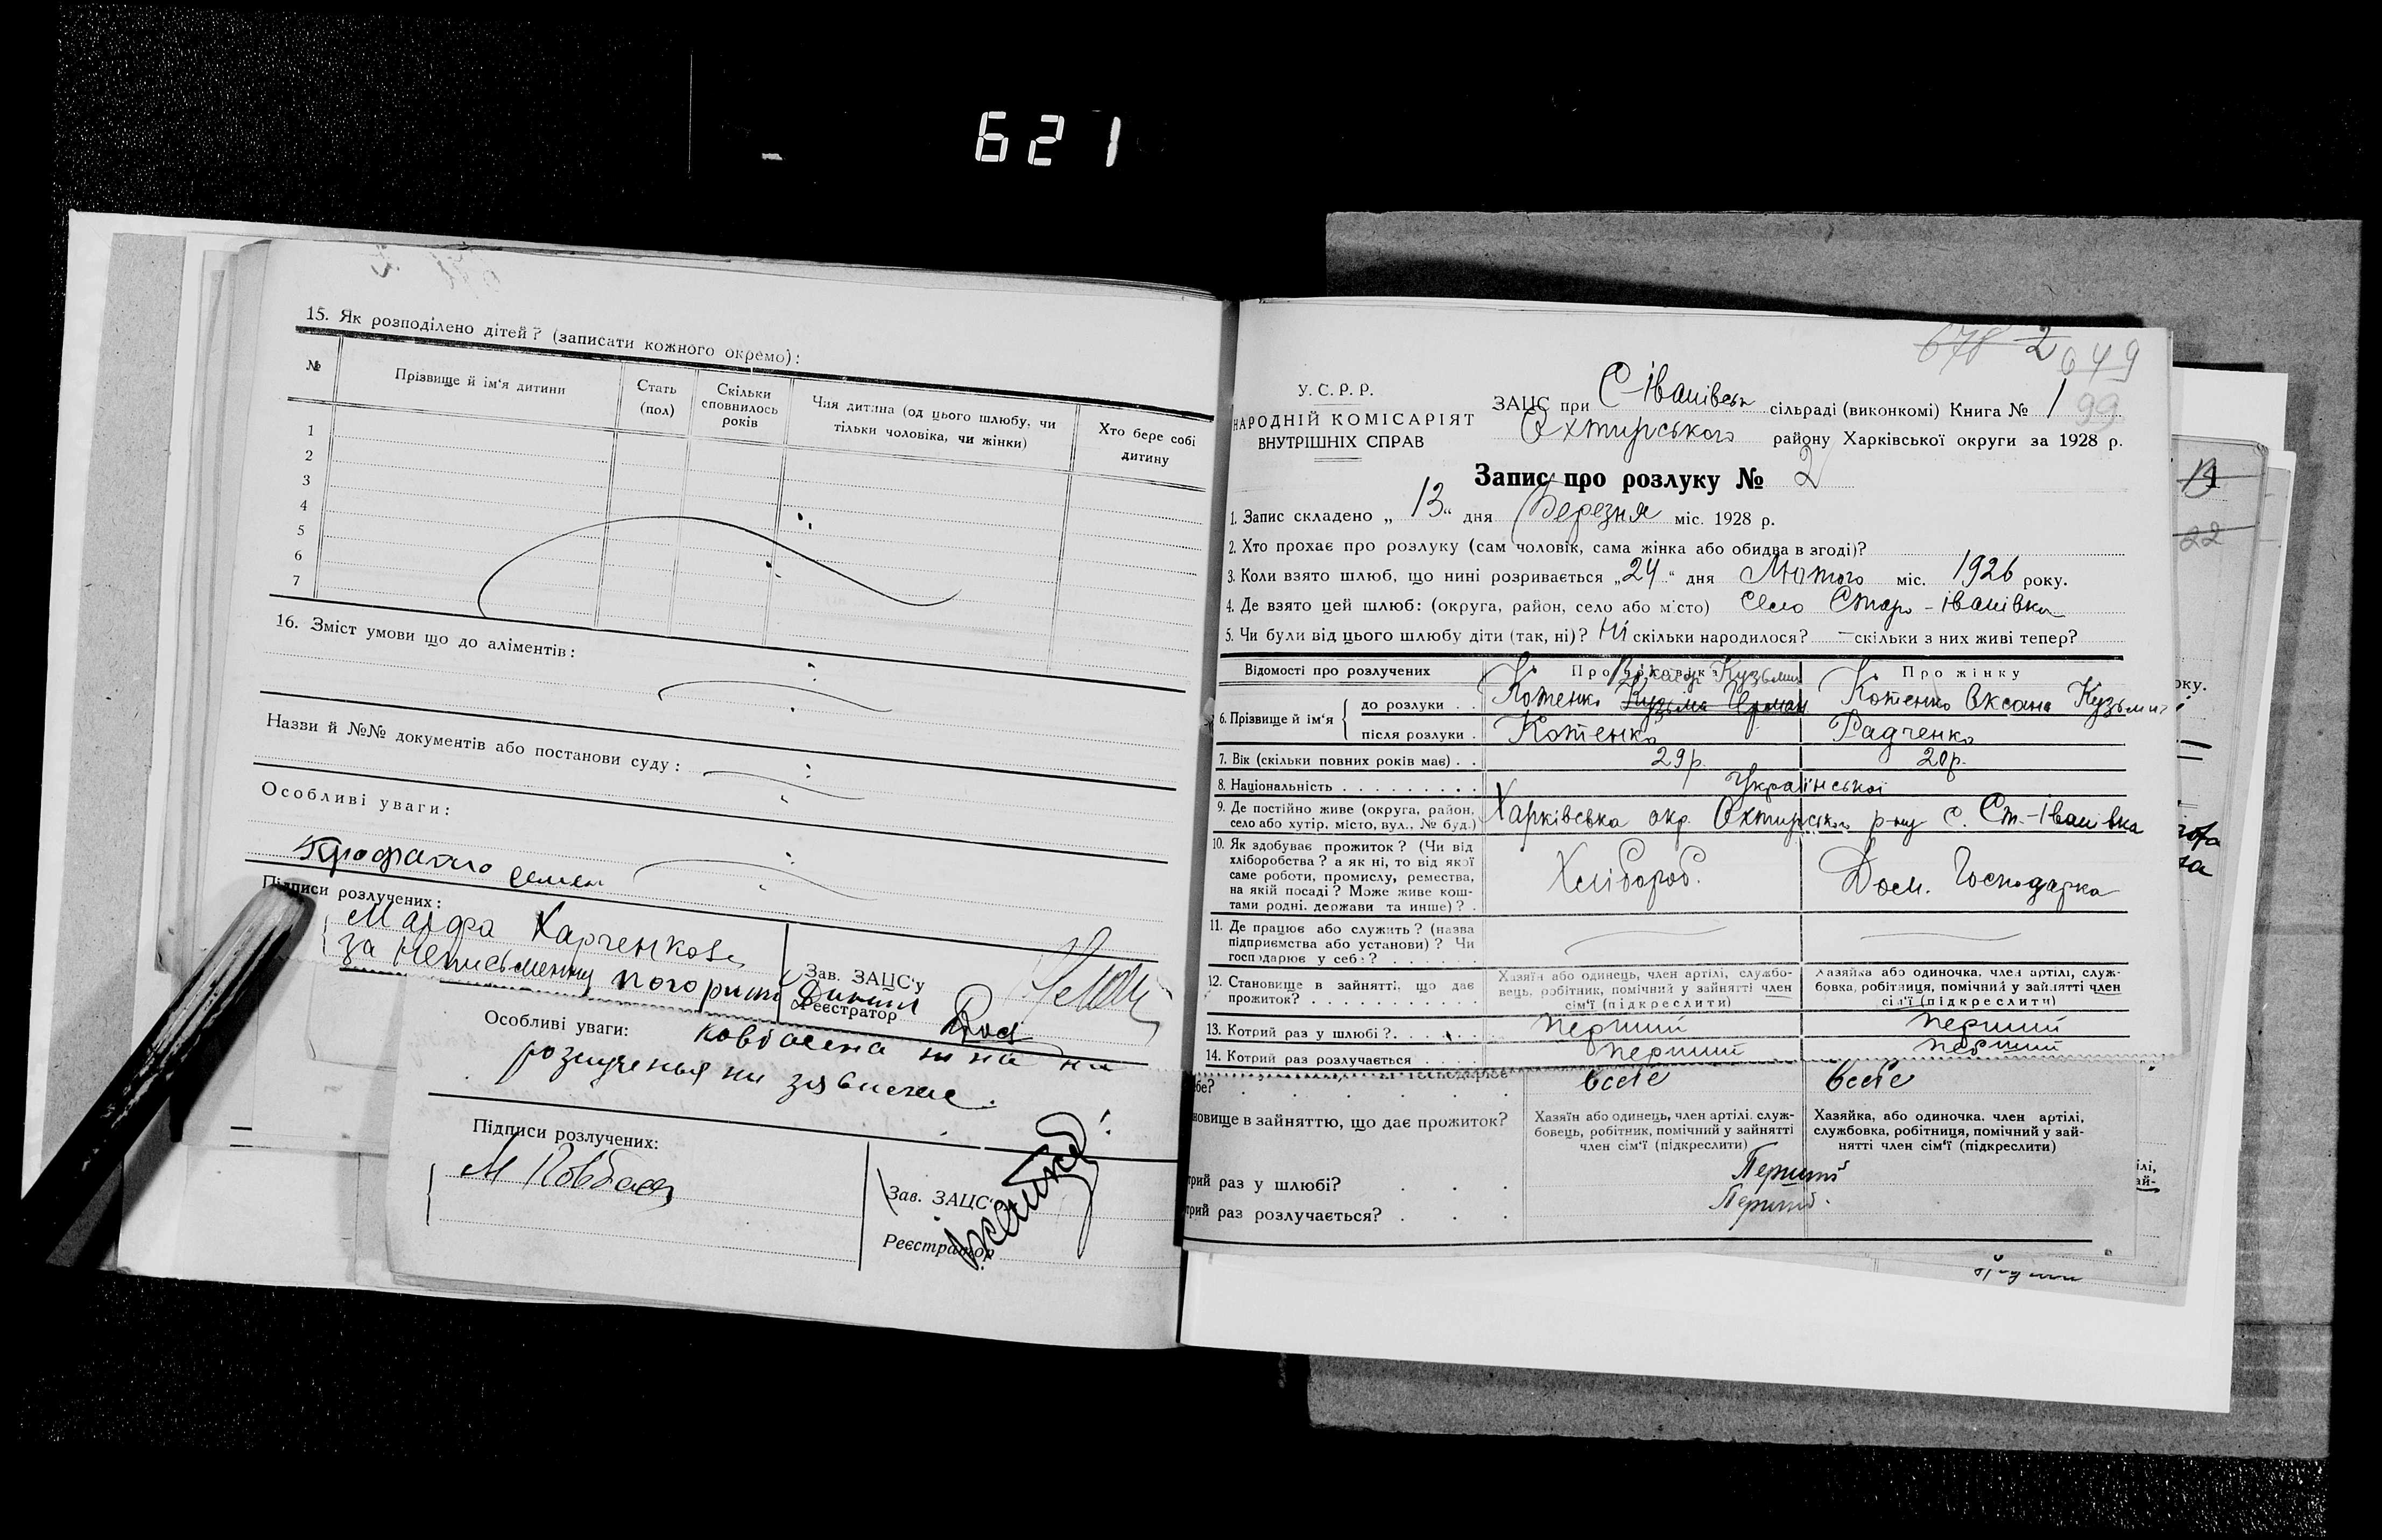 621
15. Як розподілено дітей? (записати кожного окремо):
№
Прізвище й ім'я дитини
Стать (пол)
Скільки сповнилось років
Чия дитина (од цього шлюбу, чи тільки чоловіка, чи жінки)
Хто бере собі дитину
1
2
3
4
5
6
7
16. Зміст умови що до аліментів:
Назви й №№ документів або постанови суду:
Особливі уваги:
Підписи розлучених:
Марфа Харченкова
за неписьменну
Зав. ЗАЦС'у
Реєстратор
Особливі уваги:
Підписи розлучених:
М Ковбаса
Зав. ЗАЦС'
Реєстратор
678 2 649
У.С.Р.Р.
НАРОДНІЙ КОМІСАРІЯТ
ВНУТРІШНІХ СПРАВ
ЗАЦС при С-Іванівськ сільраді (виконкомі) Книга № 1 99
Охтирського району Харківської округи за 1928 р.
Запис про розлуку № 2
1. Запис складено „13" дня Березня міс. 1928 р.
2. Хто прохає про розлуку (сам чоловік, сама жінка або обидва в згоді)?
3. Коли взято шлюб, що нині розривається „24" дня Лютого міс. 1926 року.
4. Де взято цей шлюб: (округа, район, село або місто) Село Старо-Іванівка
5. Чи були від цього шлюбу діти (так, ні)? Ні скільки народилося? — скільки з них живі тепер?
Відомості про розлучених
Про чоловіка
Про жінку
Кузьмич
6. Прізвище й ім'я
до розлуки . . Котенко Кузьма Котенко Оксана Кузьми
після розлуки . Котенко Радченко
7. Вік (скільки повних років має) . . 29р. 20р.
8. Національність . . . . . . . . . Української
9. Де постійно живе (округа, район, село або хутір, місто, вул., № буд.) Харківська окр. Охтирськ р-ну с. Ст.-Іванівка
10. Як здобуває прожиток? (Чи від хліборобства? а як ні, то від якої саме роботи, промислу, ремества, на якій посаді? Може живе коштами родні, держави та инше)? . Хлібороб. Дом. Господарка
11. Де працює або служить? (назва підприємства або установи)? Чи господарює у себе? . . . . . .
12. Становище в зайнятті, що дає прожиток? . . . . . . . . . . .
Хазяїн або одинець, член артілі, службовець, робітник, помічний у зайнятті член сім'ї (підкреслити)
Хазяйка або одиночка, член артілі, службовка, робітниця, помічний у зайнятті член сім'ї (підкреслити)
13. Котрий раз у шлюбі? . . . . . перший перший
14. Котрий раз розлучається . . . . перший перший
бе?
новище в зайняттю, що дає прожиток?
Хазяїн або одинець, член артілі, службовець, робітник, помічний у зайнятті член сім'ї (підкреслити)
Хазяйка, або одиночка, член артілі, службовка, робітниця, помічний у зайнятті член сім'ї (підкреслити)
трий раз у шлюбі? . . . Перший
трий раз розлучається? . . . Перший
22
оку.